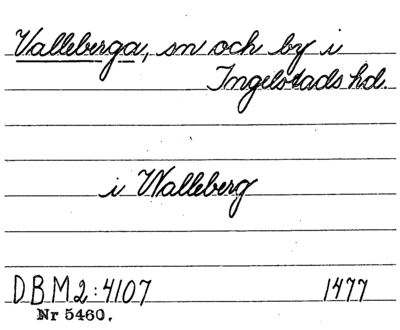 Valleberga, sn och by i
Ingelstads hd.
i Walleberg
DBM2:4107 1477
Nr 5460.